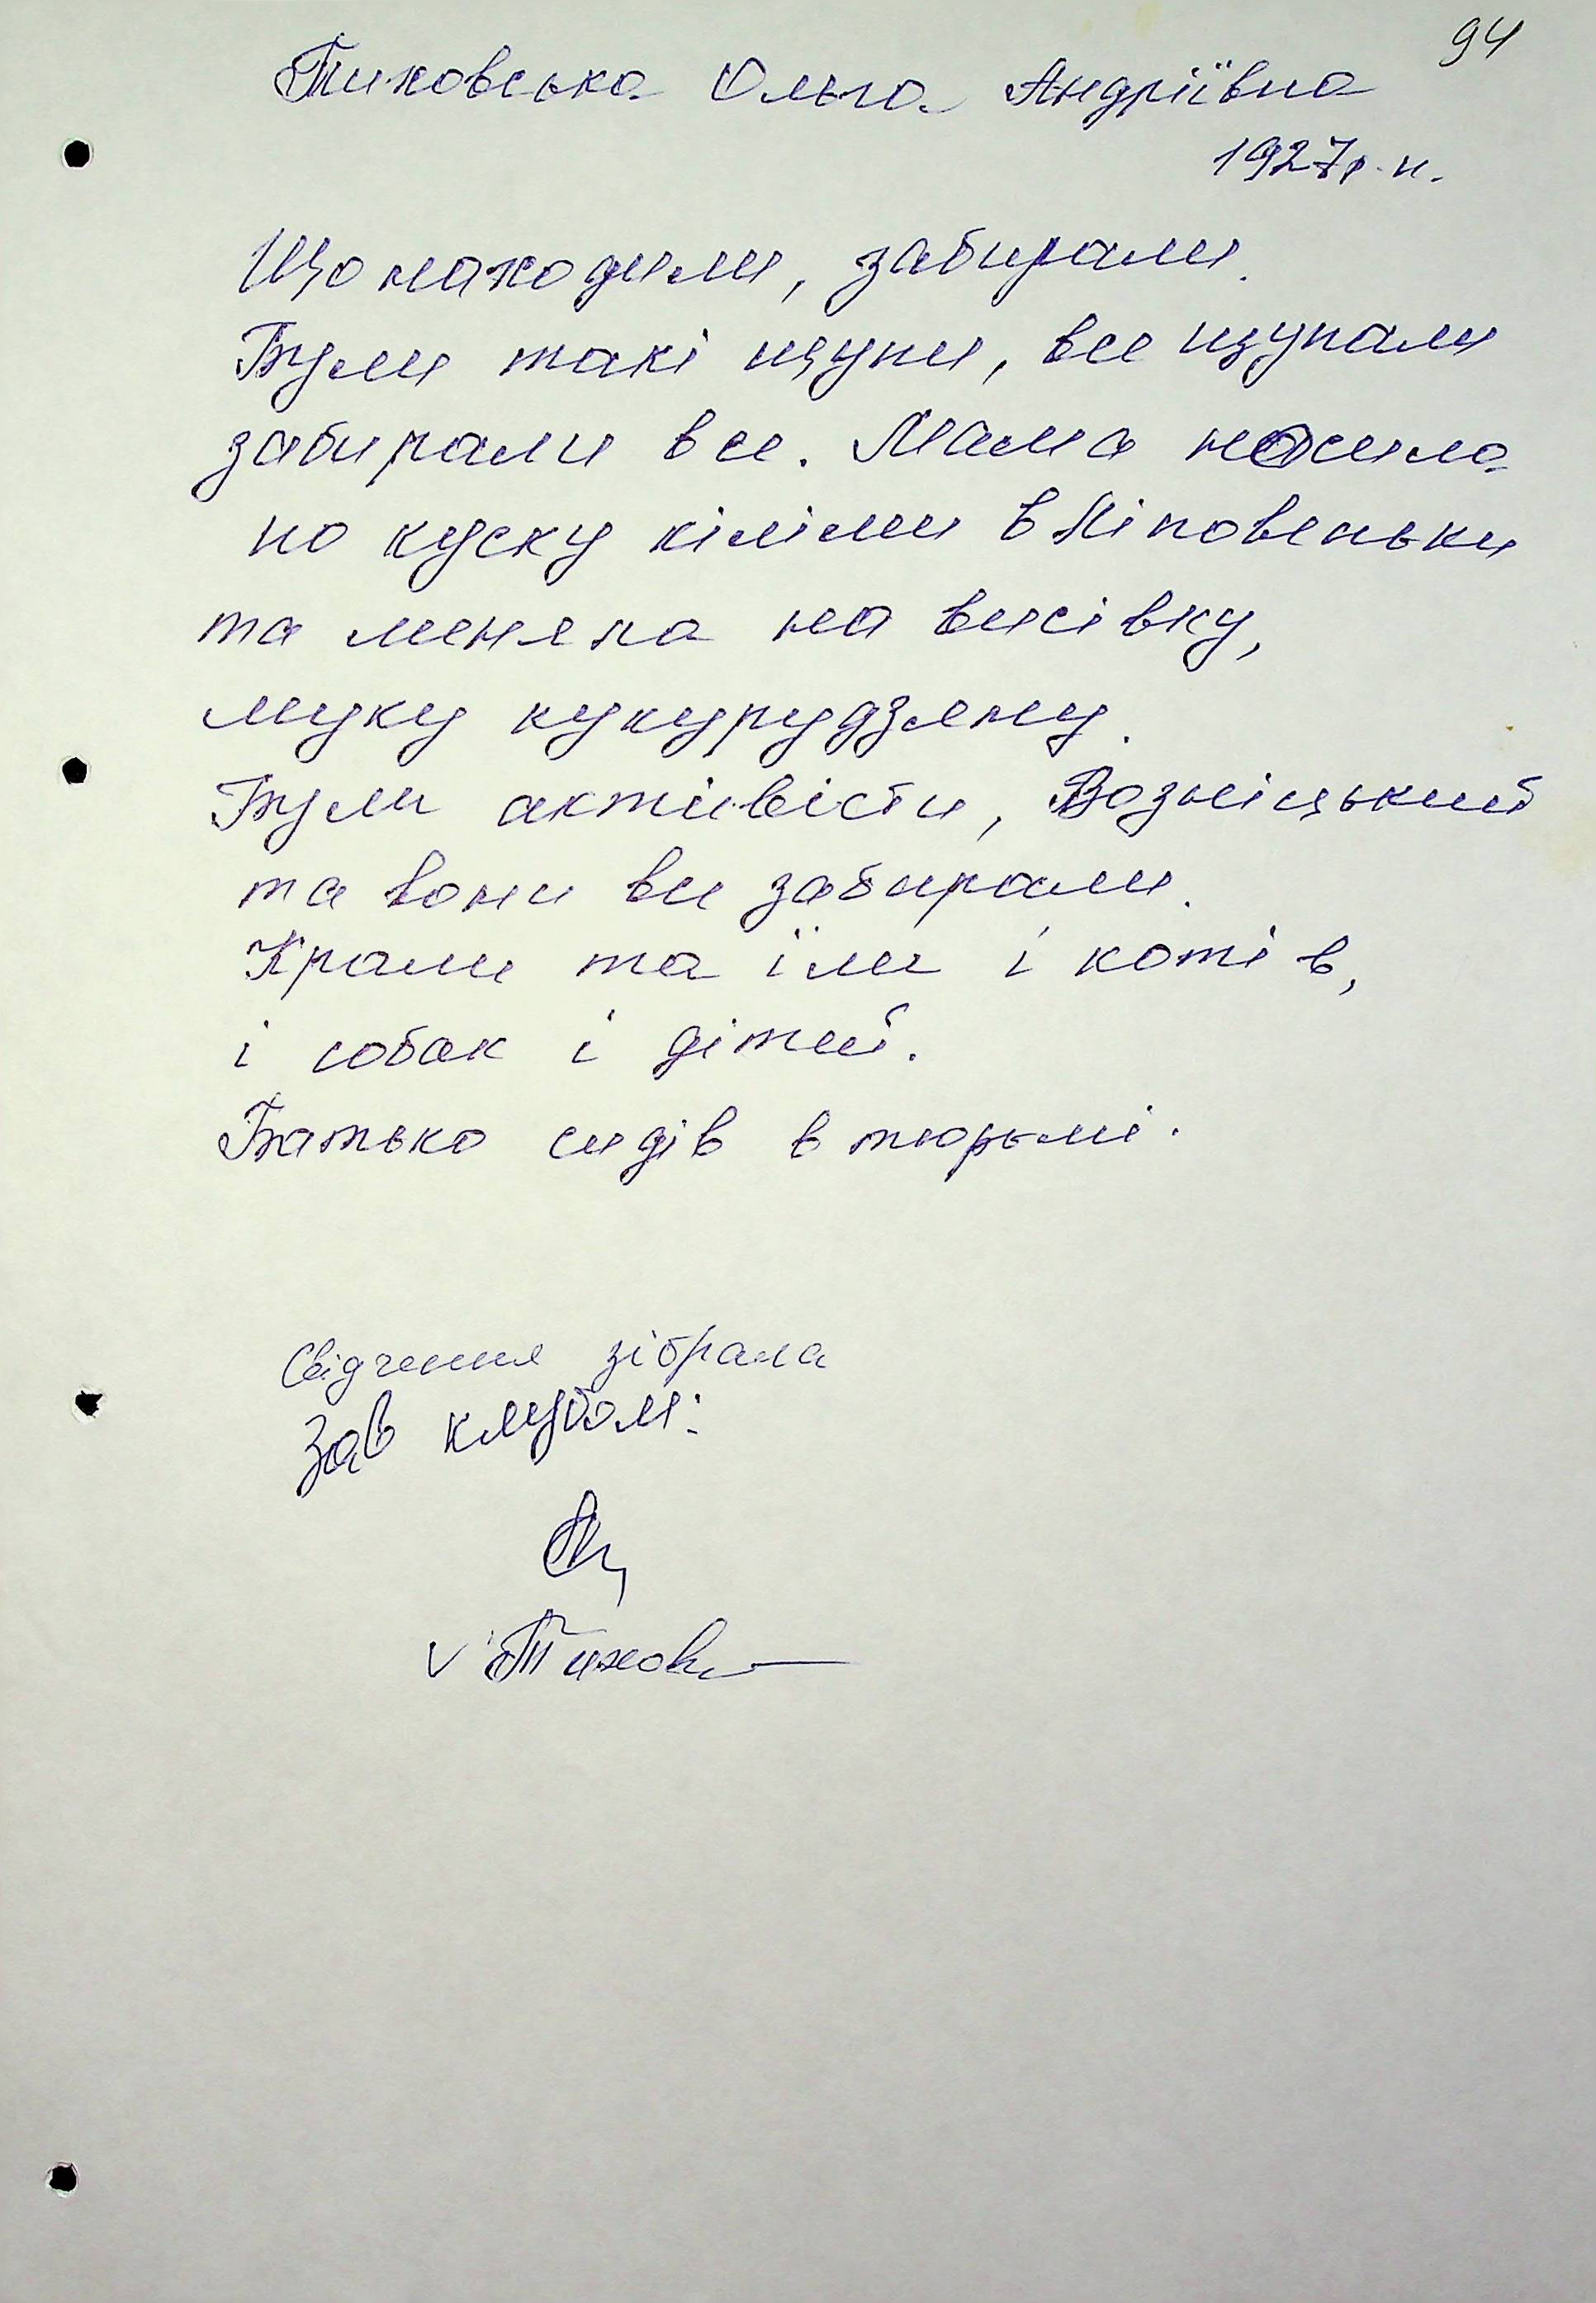 94
Тиховська Ольга Андріївна
1927р.н.
Що находили, забирали.
Були такі щупи, все щупали
забирали все. Мама носила
по куску кіліми в Ліповеньки
та меняла на висівку,
муку кукурудзяну.
Були активісти, Возніцький
та вони все забирали.
Крали та їли і котів,
і собак і дітей.
Батько сидів в тюрьмі.
Свідчення зібрала
Зав клубом:
v Тихов